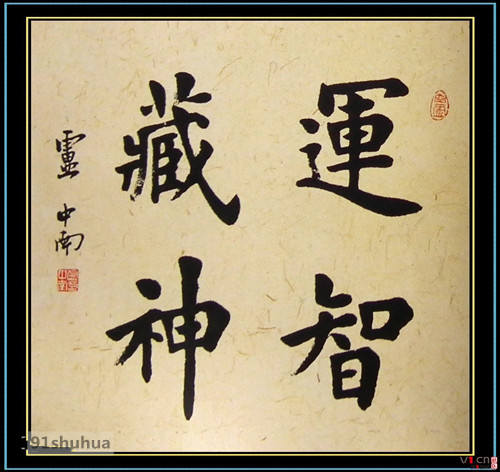 運智
藏神
盧中南
91shuhua
v1.cn